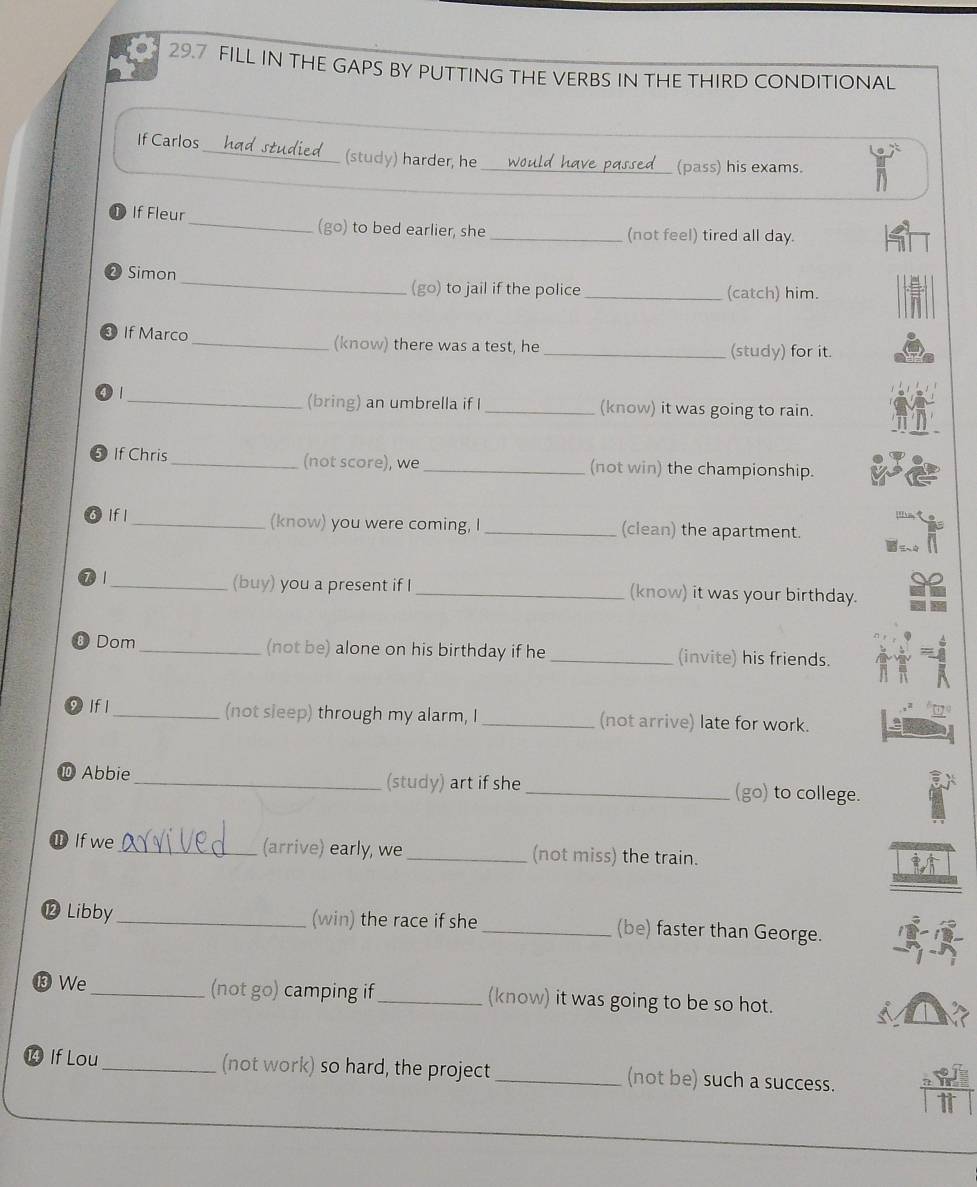 29.7 FILL IN THE GAPS BY PUTTING THE VERBS IN THE THIRD CONDITIONAL
If Carlos had studied (study) harder, he would have passed (pass) his exams.
1 If Fleur ____________ (go) to bed earlier, she ____________ (not feel) tired all day.
2 Simon ____________ (go) to jail if the police ____________ (catch) him.
3 If Marco ____________ (know) there was a test, he ____________ (study) for it.
4 I ____________ (bring) an umbrella if I ____________ (know) it was going to rain.
5 If Chris ____________ (not score), we ____________ (not win) the championship.
6 If I ____________ (know) you were coming, I ____________ (clean) the apartment.
7 I ____________ (buy) you a present if I ____________ (know) it was your birthday.
8 Dom ____________ (not be) alone on his birthday if he ____________ (invite) his friends.
9 If I ____________ (not sleep) through my alarm, I ____________ (not arrive) late for work.
10 Abbie ____________ (study) art if she ____________ (go) to college.
11 If we arrived (arrive) early, we ____________ (not miss) the train.
12 Libby ____________ (win) the race if she ____________ (be) faster than George.
13 We ____________ (not go) camping if ____________ (know) it was going to be so hot.
14 If Lou ____________ (not work) so hard, the project ____________ (not be) such a success.